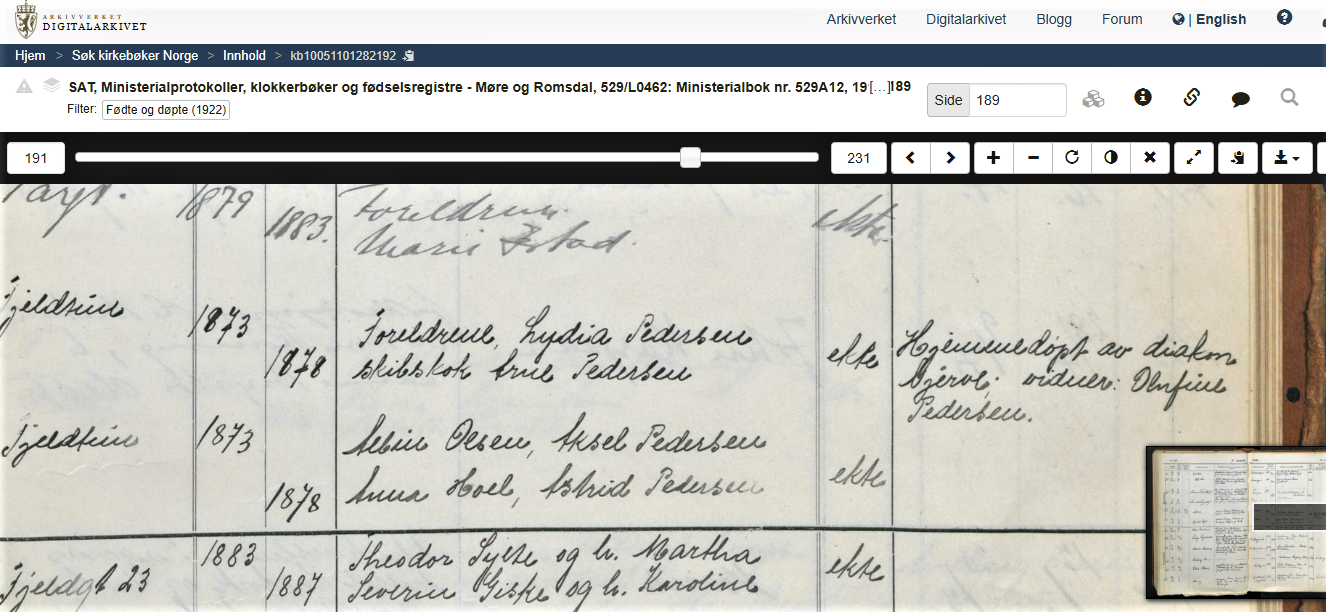 ARKIVVERKET
DIGITALARKIVET
Arkivverket Digitalarkivet Blogg Forum | English
Hjem > Søk kirkebøker Norge > Innhold > kb10051101282192
SAT, Ministerialprotokoller, klokkerbøker og fødselsregistre - Møre og Romsdal, 529/L0462: Ministerialbok nr. 529A12, 19[…]189
Filter: Fødte og døpte (1922)
Side 189
191 231
1879 Foreldrene.
1883. Marie ekte.
Fjeldtun 1873 Foreldrene, Lydia Pedersen
1878 skibskok Arne Pedersen ekte
Hjemmedøpt av diakon
Bjervl; vidner: Olufine
Pedersen.
Fjeldtun 1873 Albin Olsen, Aksel Pedersen
1878 Anna Hoel, Astrid Pedersen ekte
1883 Theodor Sylte og h. Martha
Fjeldgt 23 1887 Severin Giske og h. Karoline ekte